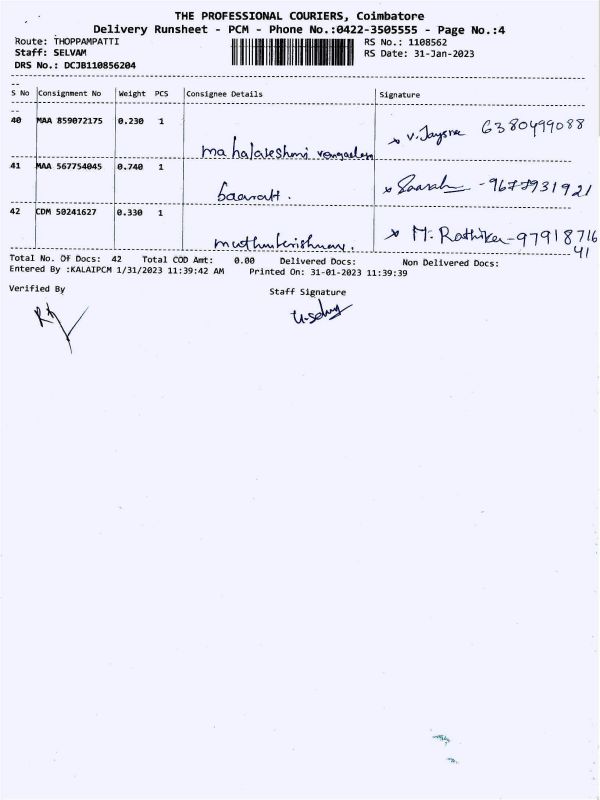 THE PROFESSIONAL COURIERS, Coimbatore
Delivery Runsheet - PCM - Phone No.:0422-3505555 - Page No.:4
Route: THOPPAMPATTI RS No.: 1108562
Staff: SELVAM RS Date: 31-Jan-2023
DRS No.: DCJB110856204
S No Consignment No Weight PCS Consignee Details Signature
40 MAA 859072175 0.230 1 V. Jaysree 6380499088
41 MAA 567754045 0.740 1 - 9677931921
baarath.
42 CDM 50241627 0.330 1 M. Rathika - 97918716
41
muthukrishnan.
Total No. OF Docs: 42 Total COD Amt: 0.00 Delivered Docs: Non Delivered Docs:
Entered By :KALAIPCM 1/31/2023 11:39:42 AM Printed On: 31-01-2023 11:39:39
Verified By Staff Signature